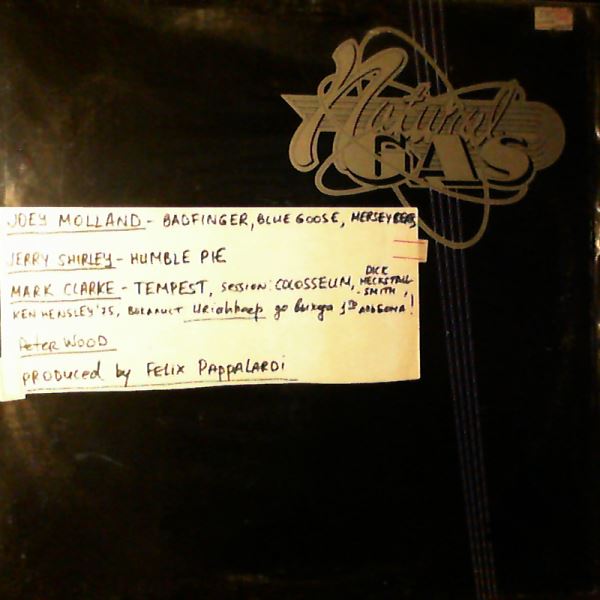 Natural
GAS
JOEY MOLLAND - BADFINGER, BLUE GOOSE, MERSEYBEATS
JERRY SHIRLEY - HUMBLE PIE
MARK CLARKE - TEMPEST, SESSION: COLOSSEUM, DICK HECKSTALL-SMITH,
KEN HENSLEY '75, Uriah heep до выхода 1го альбома!
Peter WOOD
PRODUCED by FELIX PAPPALARDI